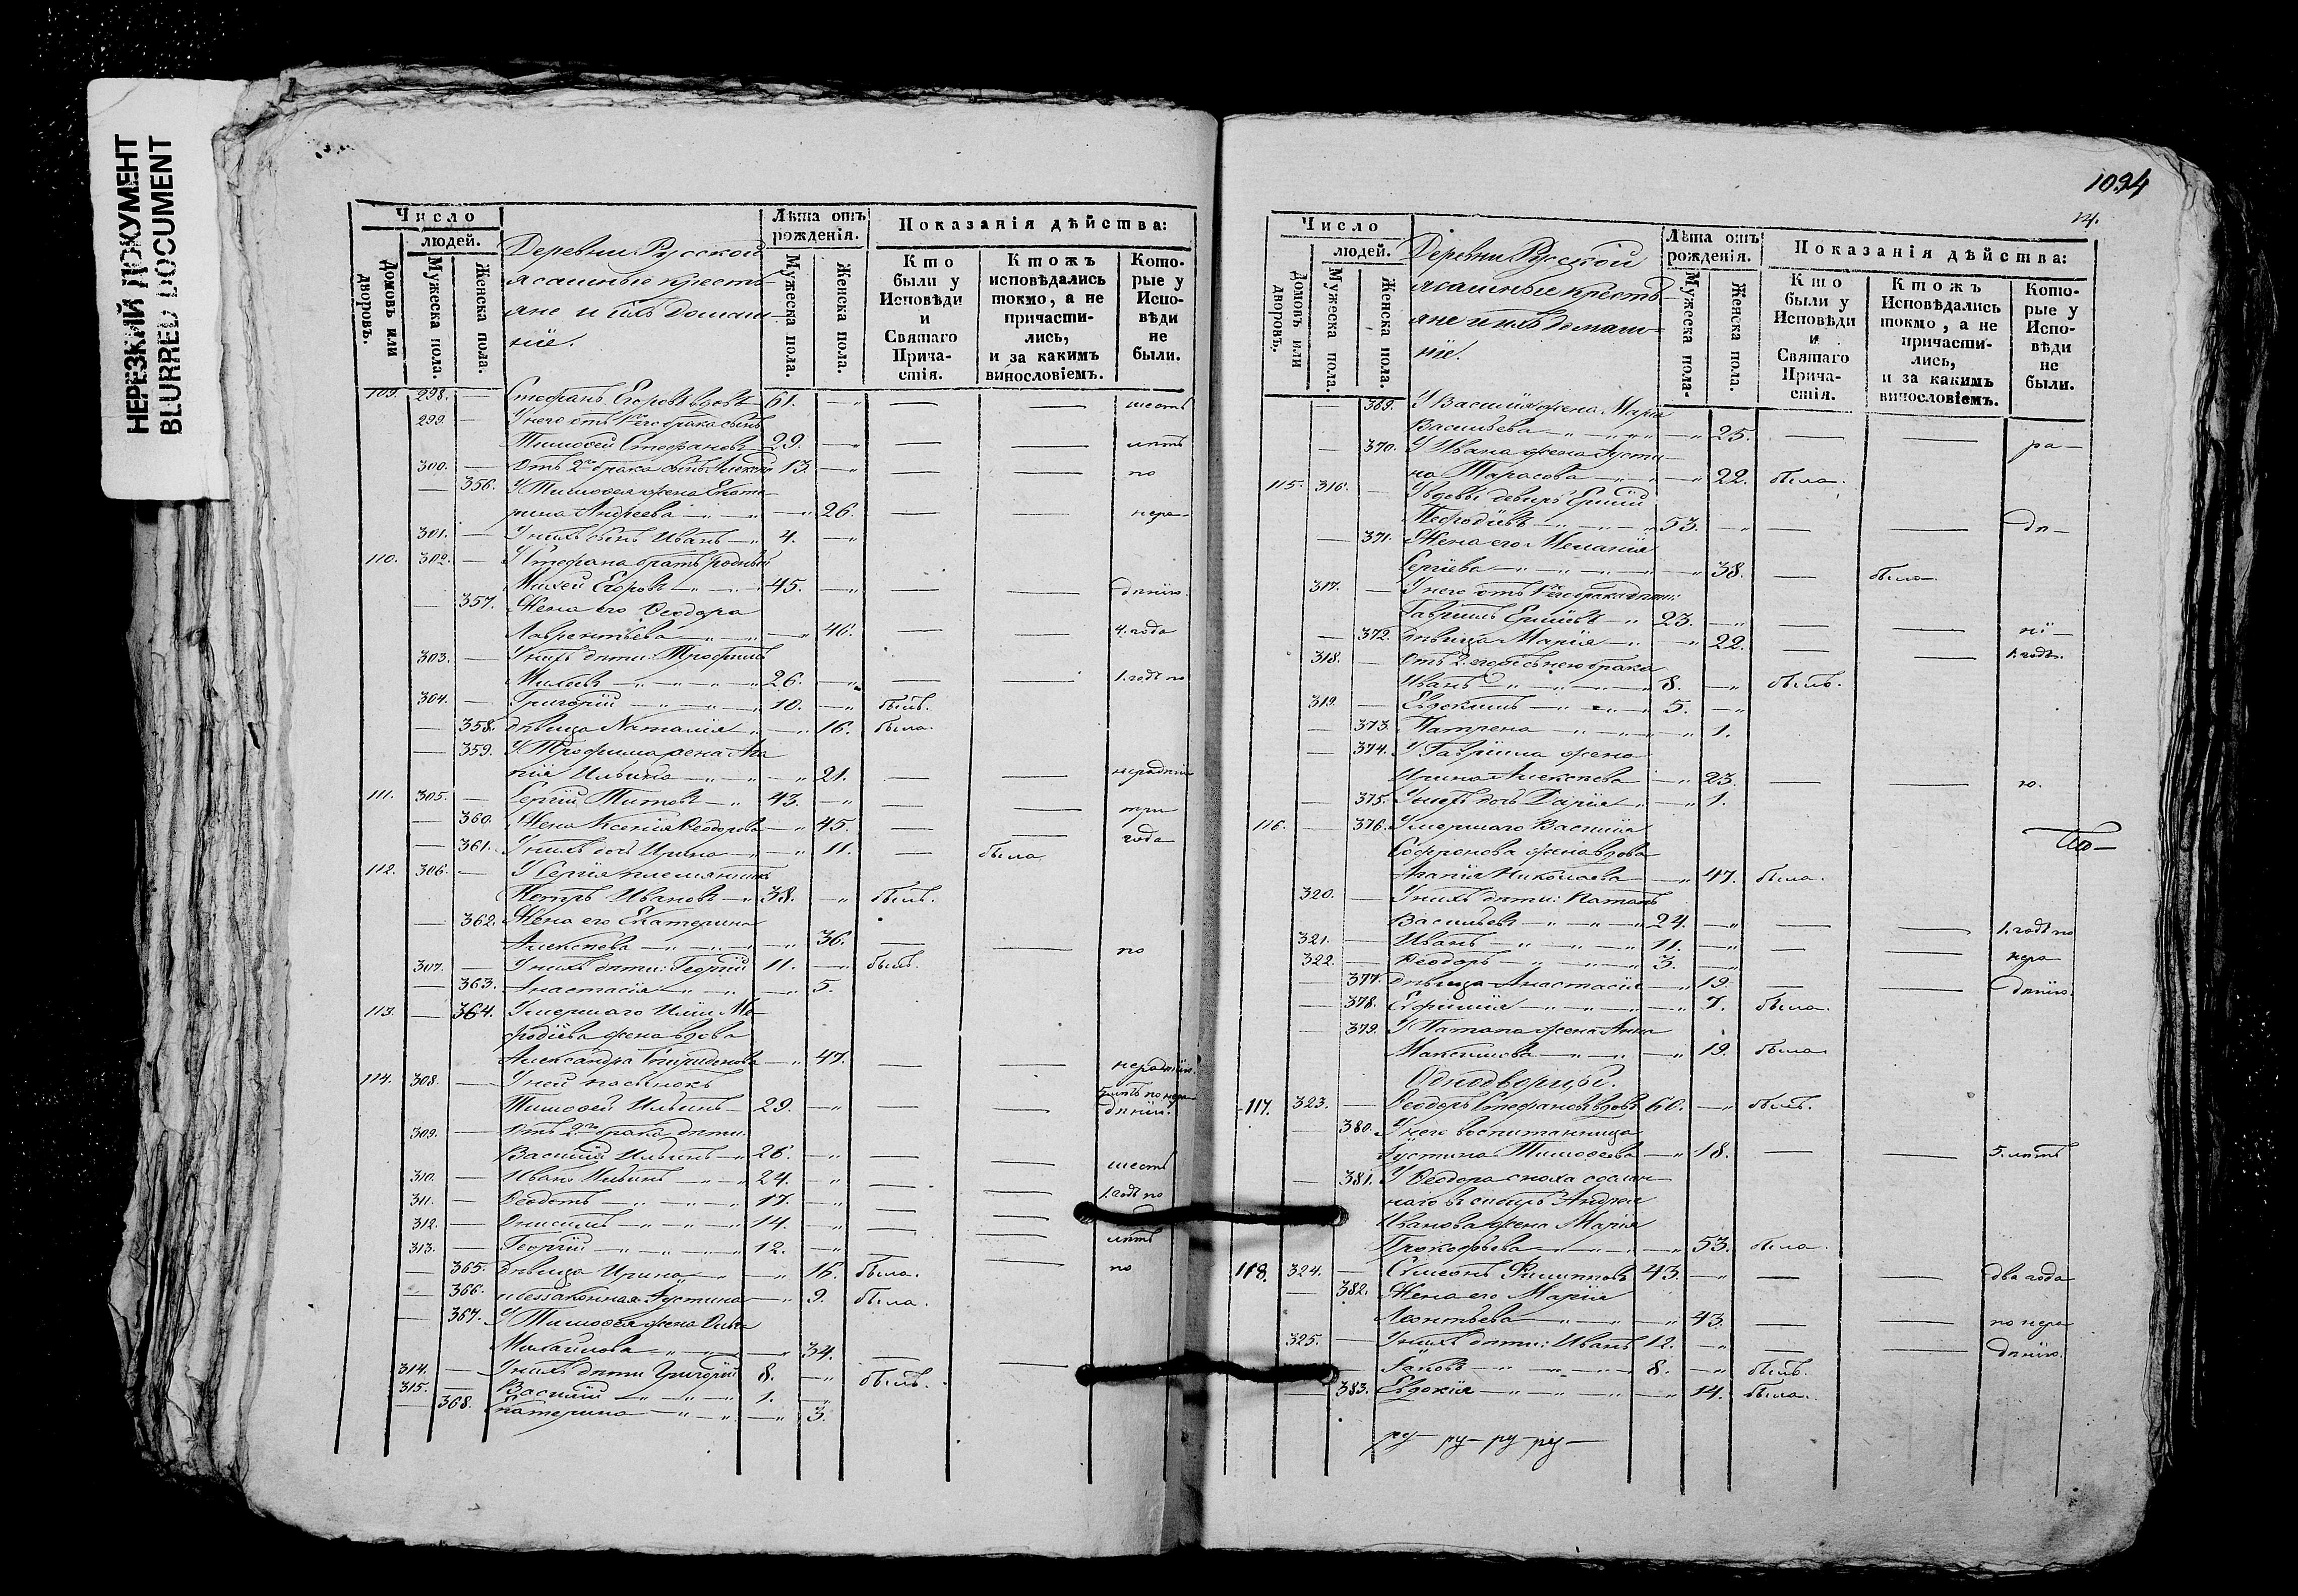 НЕРЕЗКИЙ ДОКУМЕНТ
BLURRED DOCUMENT
Число
людей.
Домовъ или дворовъ.
Мужеска пола.
Женска пола.
Деревни Русской
ясашные кресть-
яне и ихъ домаш-
ніе.
Лѣта отъ рожденія.
Мужеска пола.
Женска пола.
Показанія дѣйства:
Кто были у Исповѣди и Святаго Прича-стія.
Ктожъ исповѣдались токмо, а не причасти-лись, и за какимъ винословіемъ.
Кото-рые у Испо-вѣди не были.
109. 298. — Стефанъ Егоровъ вдовъ 61. — шесть
299. — У него отъ 1го брака сынъ
Тимофей Стефановъ 29. — лѣтъ
300. — Отъ 2го брака сынъ Алексѣй 13. — по
— 356. У Тимофея жена Екате-
рина Андреева — 26. — нера-
301. — У нихъ сынъ Иванъ 4.
110. 302. — У Стефана братъ родный
Михей Егоровъ 45. — дѣнію.
— 357. Жена его Ѳеодора
Лаврентьева — 46. — 4. года
303. — У нихъ дѣти: Трофимъ
Михеевъ 26. — 1. годъ по
304. — Григорій 10. — былъ.
— 358. дѣвица Наталія — 16. была.
— 359. У Трофима жена Ага
пія Ильина — 21. — нерадѣнію
111. 305. — Сергій Титовъ 43. — три
— 360. Жена Ксенія Ѳеодорова — 45. — года
— 361. У нихъ дочь Ирина — 11. — была
112. 306. — У Сергія племянникъ
Петръ Ивановъ 38. былъ.
— 362. Жена его Екатерина
Алексѣева — 36. — по
307. — У нихъ дѣти: Георгій 11. — былъ.
— 363. Анастасія — 5.
113. — 364. Умершаго Иліи Ме-
фодіева жена вдова
Александра Спиридонова — 47. — нерадѣнію.
114. 308. — У ней пасынокъ
Тимофей Ильинъ 29. — 5 лѣтъ по нера-
дѣнію.
309. — Отъ 2го брака дѣти:
Василій Ильинъ 26. — шесть
310. — Иванъ Ильинъ 24.
311. — Ѳеодотъ 17. — 1. годъ по
312. — Онисимъ 14.
313. — Георгій 12. — лѣтъ
— 365. Дѣвица Ирина — 16. была. по
— 366. незаконная Іустина — 9. была.
— 367. У Тимофея жена Ольга
Михайлова — 34.
314. — У нихъ дѣти Григорій 8. — былъ.
315. — Василій 1.
— 368. Екатерина — 3.
1094
14.
Число
людей.
Домовъ или дворовъ.
Мужеска пола.
Женска пола.
Деревни Русской
ясашные кресть-
яне и ихъ домаш=
ніе.
Лѣта отъ рожденія.
Мужеска пола.
Женска пола.
Показанія дѣйства:
Кто были у Исповѣди и Святаго Прича-стія.
Ктожъ Исповѣдались токмо, а не причасти-лись, и за какимъ винословіемъ.
Кото-рые у Испо-вѣди не были.
— 369. У Василія жена Марія
Васильева — 25. — ра—
— 370. У Ивана жена Іусти-
на Тарасова — 22. была.
115. 316. — У вдовы деверь Ермій
Мефодіевъ 53. — дѣ—
— 371. Жена его Меланія
Сергіева — 38. — была
317. — У него отъ 1го брака дѣти:
Гавріилъ Ерміевъ 23. — ні—
— 372. дѣвица Марія — 22. — 1. годъ.
318. — Отъ 2го брака
Иванъ 8. — былъ.
319. — Евдокимъ 5.
— 373. Матрена — 1.
— 374. У Гавріила жена
Ирина Алексѣева — 23. — ю.
— 375. У нихъ дочь Дарія — 1.
116. — 376. Умершаго Василія
Софронова жена вдова
Агапія Николаева — 47. была.
320. — У нихъ дѣти: Патапъ
Васильевъ 24. — 1. годъ по
321. — Иванъ 11. — нера
322. — Ѳеодоръ 3.
— 377. Дѣвица Анастасія — 19. — дѣнію.
— 378. Евфимія — 7. была.
— 379. У Патапа жена Анна
Максимова — 19. была
Однодворцы.
117. 323. — Ѳеодоръ Стефановъ вдовъ 60. — былъ.
— 380. У него воспитанница
Іустина Тимофеева — 18. — 5. лѣтъ
— 381. У Ѳеодора сноха сослан-
наго въ сибирь Андрея
Иванова жена Марія
Прокофьева — 53. была.
118. 324. — Симеонъ Филиповъ 43. — два года
— 382. Жена его Марія
Леонтьева — 43. — по нера
325. — У нихъ дѣти: Иванъ 12. — дѣнію.
— Іаковъ 8. — былъ.
383. Евдокія — 14. была.
ру— ру— ру— ру—